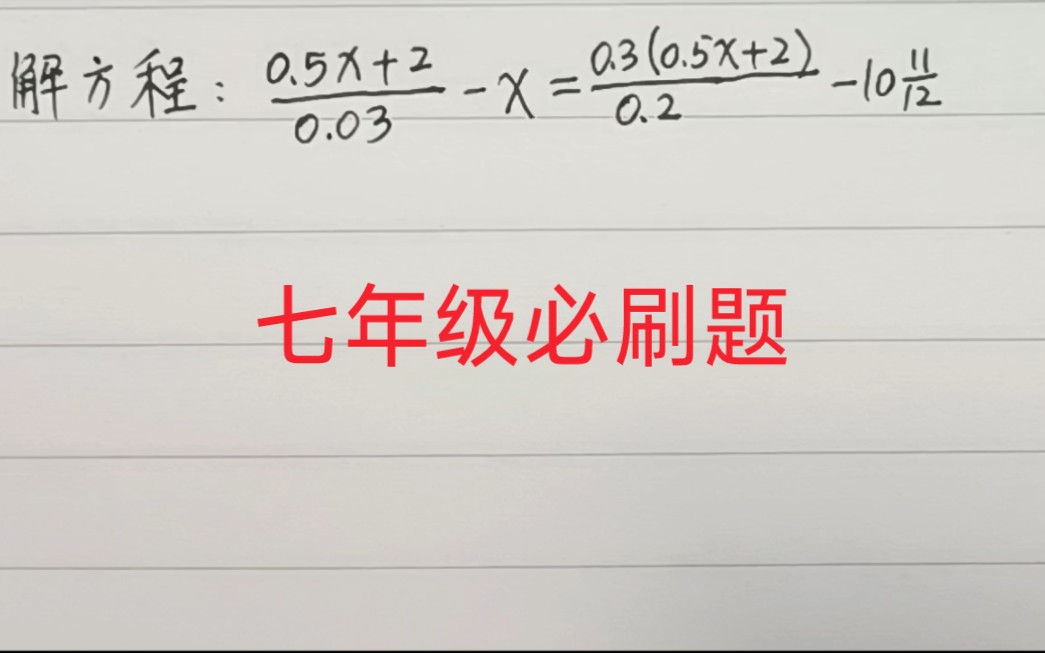 解方程: (0.5x+2)/0.03 - x = 0.3(0.5x+2)/0.2 - 10 11/12
七年级必刷题